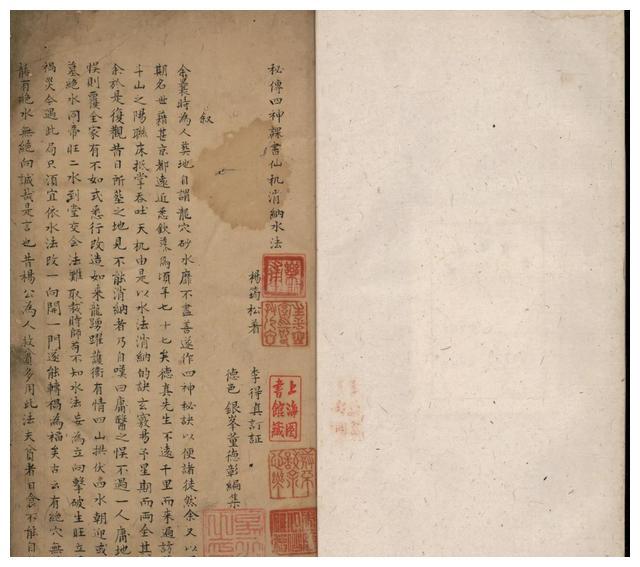 秘傳四神課書仙机消納水法
楊筠松著
李得真訂証
德邑銀峯董德彰編集
叙
余曩時為人葬地自謂龍穴砂水靡不盡善遂作四神秘訣以便諸徒然余又以
期名世藉甚京都遠近悉欽慕焉頃年七十七矣德真先生不遠千里而来遍訪
千山之陽聯床抵掌吞吐天机由是以水法消納的訣玄竅与予星期而兩全其
余於是復觀昔日所塟之地見不能消納者乃自嘆曰庸醫之悞不過一人庸地
悞則覆全家有不如式悉行改造如来龍踴躍護衛有情四山拱伏吉水朝迎或
墓絶水同帝旺二水到堂交会法難取裁時師苟不知水法妄為立向擊破生旺立
禍災今遇此局只須宜依水法改一向開一門遂能轉禍為福矣古云有絶穴無
龍有絶水無絶向誠哉是言也昔楊公為人救貧多用此法夫貧者日食不能自
上海圖
書館藏